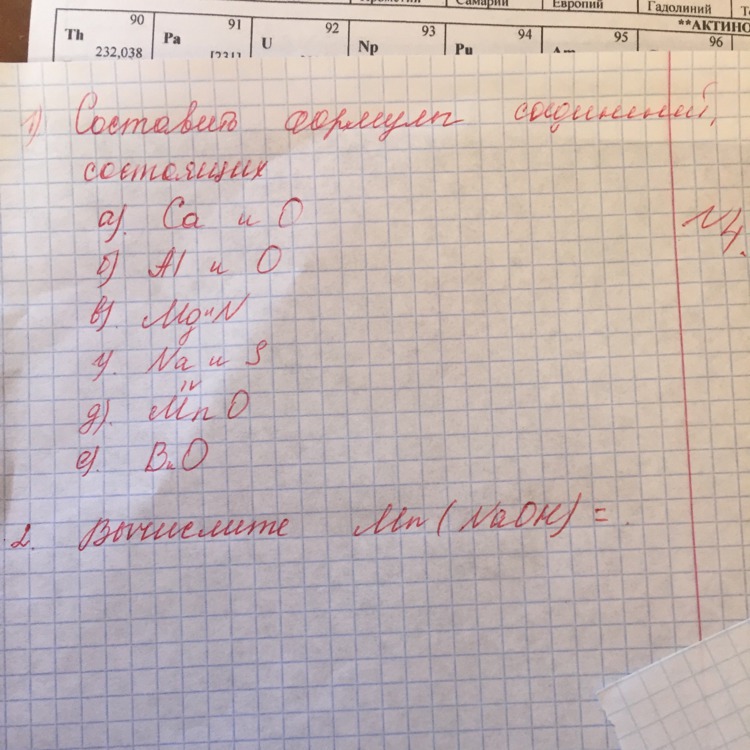 Самарий
Европий
Гадолиний
**АКТИНО
90 91 92 93 94 95 96
Th Pa U Np Pu Am
232,038 [231]
1) Составить формулы соединений,
состоящих
а). Ca и O
б) Al и O
в). Mg и N
г). Na и S
IV
д). Mn O
е). B и O
2. Вычислите Mr (NaOH) = .